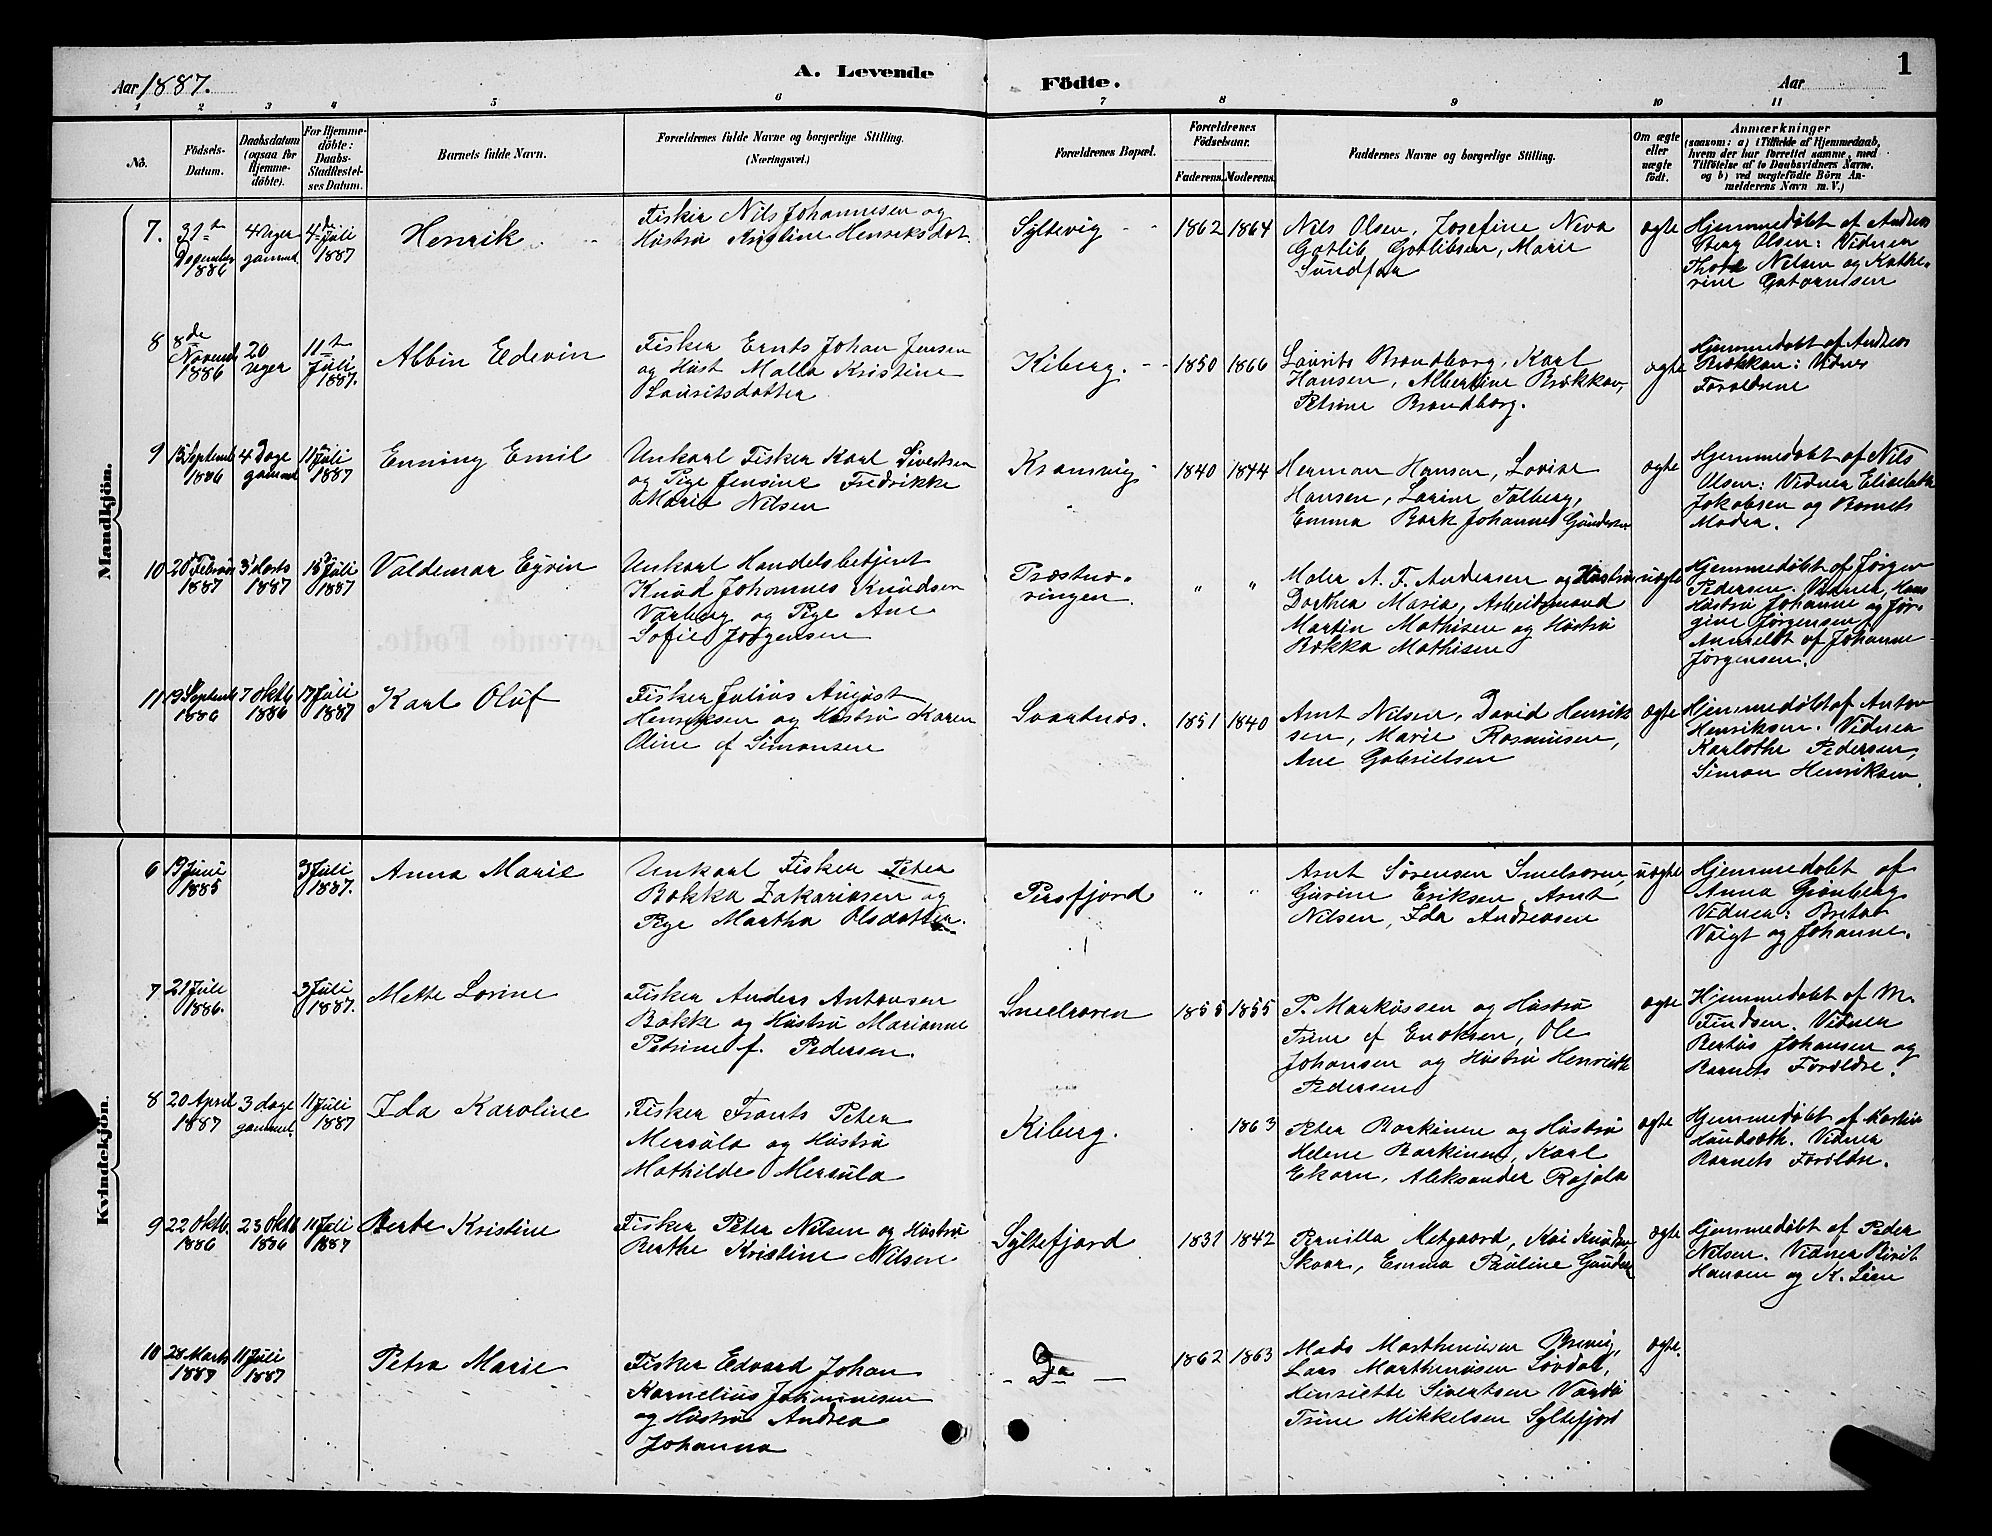 Aar 1887.
A. Levende
Födte.
Aar
1
1 2 3 4 5 6 7 8 9 10 11
No.
Födsels-Datum.
Daabsdatum (ogsaa for Hjemmedöbte).
For Hjemmedöbte: Daabs-Stadfæstelses Datum.
Barnets fulde Navn.
Forældrenes fulde Navne og borgerlige Stilling.
(Næringsvei.)
Forældrenes Bopæl.
Forældrenes Födselsaar.
Faderens. Moderens.
Faddernes Navne og borgerlige Stilling.
Om ægte eller uægte födt.
Anmærkninger
(saasom: a) i Tilfælde af Hjemmedaab, hvem der har forrettet samme, med Tilföielse af to Daabsvidners Navne, og b) ved uægtefödte Börn Anmelderens Navn m. V.)
Mandkjön.
7. 31te December 1886
4 Uger gammel
4de Juli 1887
Henrik
Fisker Nils Johannesen og
Hustru Henriksdat.
Syltevig
1862 1864
Nils Olsen, Josefine Neva
Gotlib Gotlibsen, Marie
Sundfær
ægte
Hjemmedøbt af Andreas
Berg Olsen: Vidner
Nilsen og Kathe-
rine
8 8de Novemb 1886
20 Uger
11te Juli 1887.
Albin Edevin
Fisker Ernts Johan Jensen
og Hust Malla Kristine
Lauritsdatter
Kiberg.
1850 1866
Laurits Brandborg, Karl
Hansen, Albertine Brækkan,
Petrine Brandborg.
ægte
Hjemmedøbt af Andreas
Brækkan: Vidner
Forældrene
9 13 Septemb 1886
4 Dage gammel
11 Juli 1887
Enning Emil
Unkarl Fisker Karl Sivertsen
og Pige Jensine Fredrikke
Marie Nilsen
Kramvig
1840 1844
Herman Hansen, Lovise
Hansen, Larine Talberg,
Emma Bark Johanne Gundersen
ægte
Hjemmedøbt af Nils
Olsen: Vidner Elisabeth
Jakobsen og Barnets
Moder.
10 20 Februar 1887
3 Marts 1887
15 Juli 1887
Valdemar Eyvin
Unkarl Handelsbetjent
Knud Johannes Knudsen
Varberg og Pige Ane
Sofie Jørgensen
Præstnæ-
ringen.
" "
Maler A. F. Andersen og Hustru
Dorthea Maria, Arbeidsmand
Martin Mathisen og Hustru
Bækka Mathisen
uægte
Hjemmedøbt af Jørgen
Pedersen. Vidner, Hans
Hustru Johanne og Jør-
gine Jørgensen,
Anmeldt af Johanne
Jørgensen.
11 19 Septemb 1886
7 Oktb 1886
17 Juli 1887
Karl Oluf
Fisker Julius August
Henriksen og Hustru Karen
Oline f Simonsen
Svartnæs.
1851 1840
Arnt Nilsen, David Henrik
sen, Marie Rasmusen,
Ane Gabrielsen
ægte
Hjemmedøbt af Anton
Henriksen. Vidner
Karlothe Pedersen,
Simon Henriksen.
Kvindekjön.
6 19 Juni 1885
3 Juli 1887.
Anna Marie
Unkarl Fisker Peter
Bakka Zakariasen og
Pige Martha Olsdatter.
Persfjord
" "
Arnt Sørensen Smelroren,
Gurine Eriksen, Arnt
Nilsen, Ida Andreasen
uægte
Hjemmedøbt af
Anna Grønberg
Vidner:
Voigt og Johanne.
7 21 Juli 1886.
3 Juli 1887.
Mette Lovine
Fisker Anders Antonsen
Bakke og Hustru Marianne
Petrine f. Pedersen.
Smelroren
1855 1855
P. Markussen og Hustru
Trine f Enoksen, Ole
Johansen og Hustru Henriette
Pedersen
ægte
Hjemmedøbt af M.
Findsen. Vidner
Bertus Johansen og
Barnets Forældre.
8 20 April 1887
3 dage gammel.
11 Juli 1887
Ida Karoline
Fisker Frants Peter
Mersula og Hustru
Mathilde Mersula
Kiberg.
1863
Peter Barkinen og Hustru
Helene Barkinen, Karl
Ekorn, Aleksander Rajala
ægte
Hjemmedøbt af
Vidner
Barnets Forældre.
9 22 Oktb. 1886
23 Oktb 1886
11 Juli 1887
Berte Kristine
Fisker Peter Nilsen og Hustru
Berthe Kristine Nilsen
Syltefjord
1831 1842
Pernilla Metgaard, Kai Knudsen
Skaar, Emma Pauline Gunders
ægte
Hjemmedøbt af Peder
Nilsen. Vidner Birit
Hansen og K.
10 28 Marts 1887
11 Juli 1887
Petra Marie
Fisker Edvard Johan
Kornelius Johannesen
og Hustru Andrea
Johanna
Do
1862 1863
Mads Marthenusen
Lars Marthenusen Løvdal,
Henriette Sivertsen Vardø
Trine Mikkelsen Syltefjord
ægte.